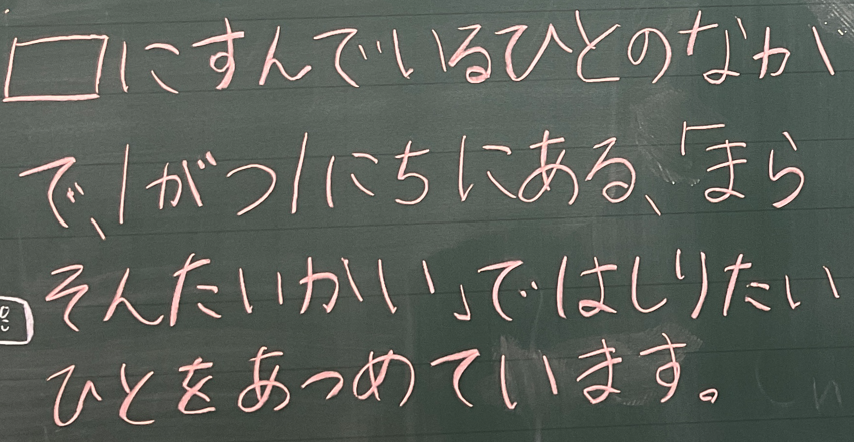 □にすんでいるひとのなか
で、1がつ1にちにある、「まら
そんたいかい」ではしりたい
ひとをあつめています。